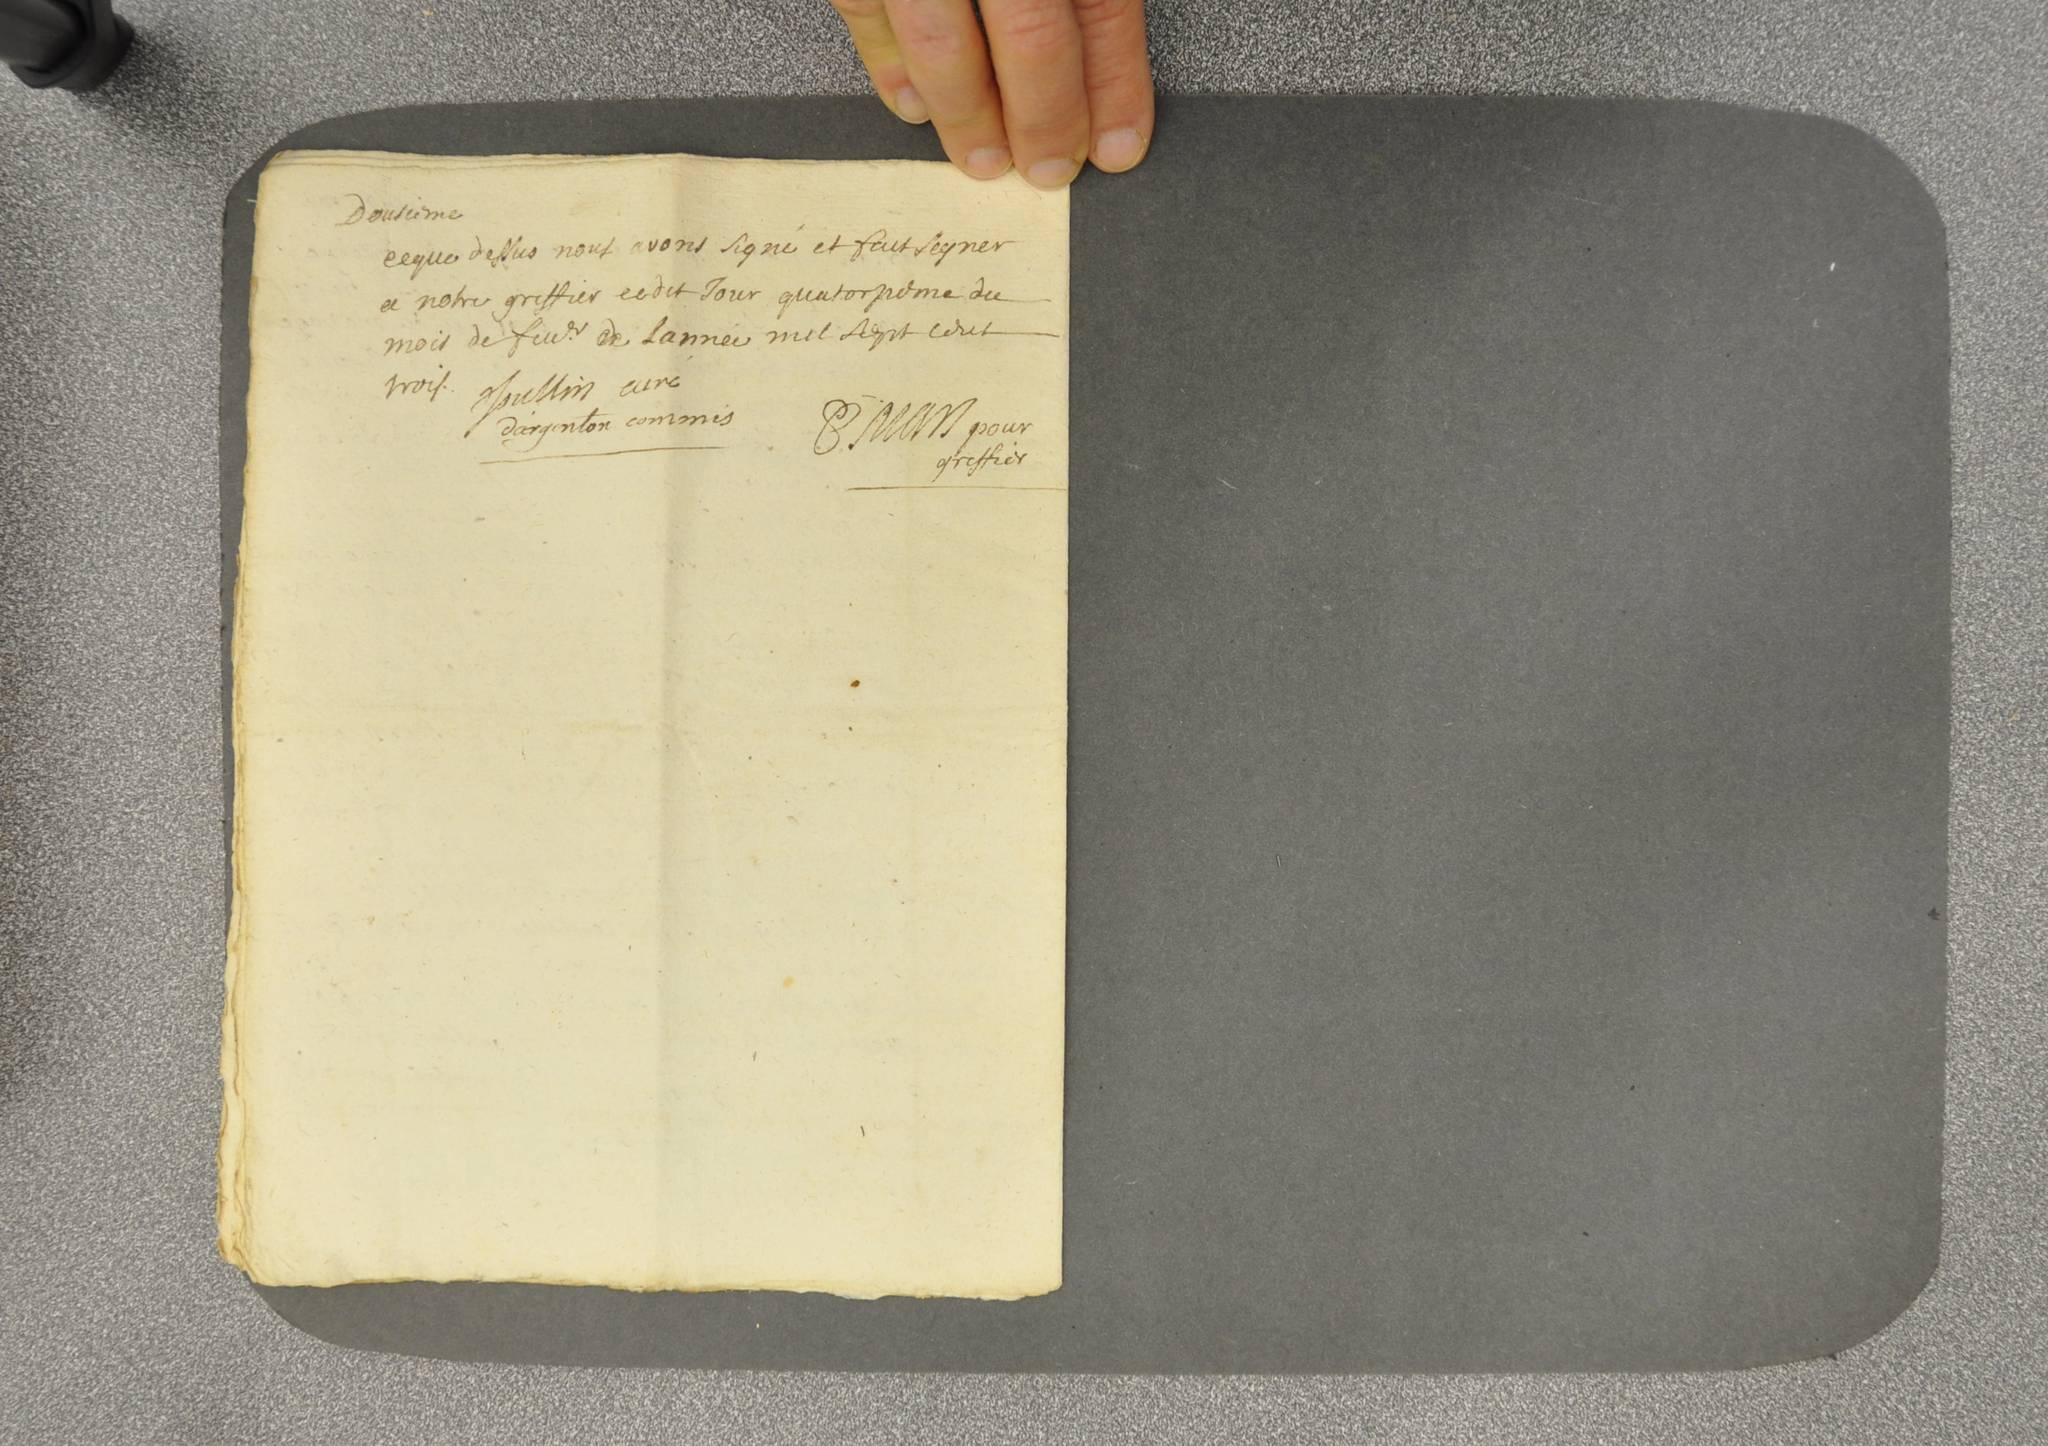 Dousieme
ceque dessus nous avons signé et fait segner
a notre greffier cedit Jour quatorzieme du
mois de feuer de Lannee mil sept cent
trois.
curé
d'argenton commis
pour
greffier